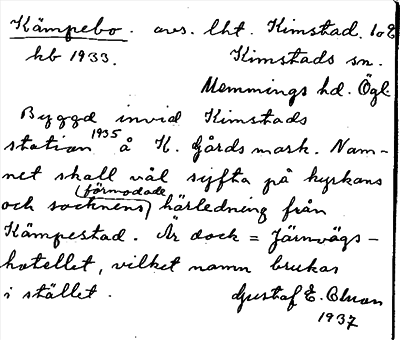 Kämpebo. avs. lht. Kimstad. 1o2
hb 1933. Kimstads sn.
Memmings hd. Ögl.
Byggd invid Kimstads
station 1935 å K. Gårds mark. Nam-
net skall väl syfta på kyrkans
och socknens (förmodade) härledning från
Kämpestad. Är dock = Järnvägs-
hotellet, vilket namn brukas
i stället. Gustaf E. Olsson
1937